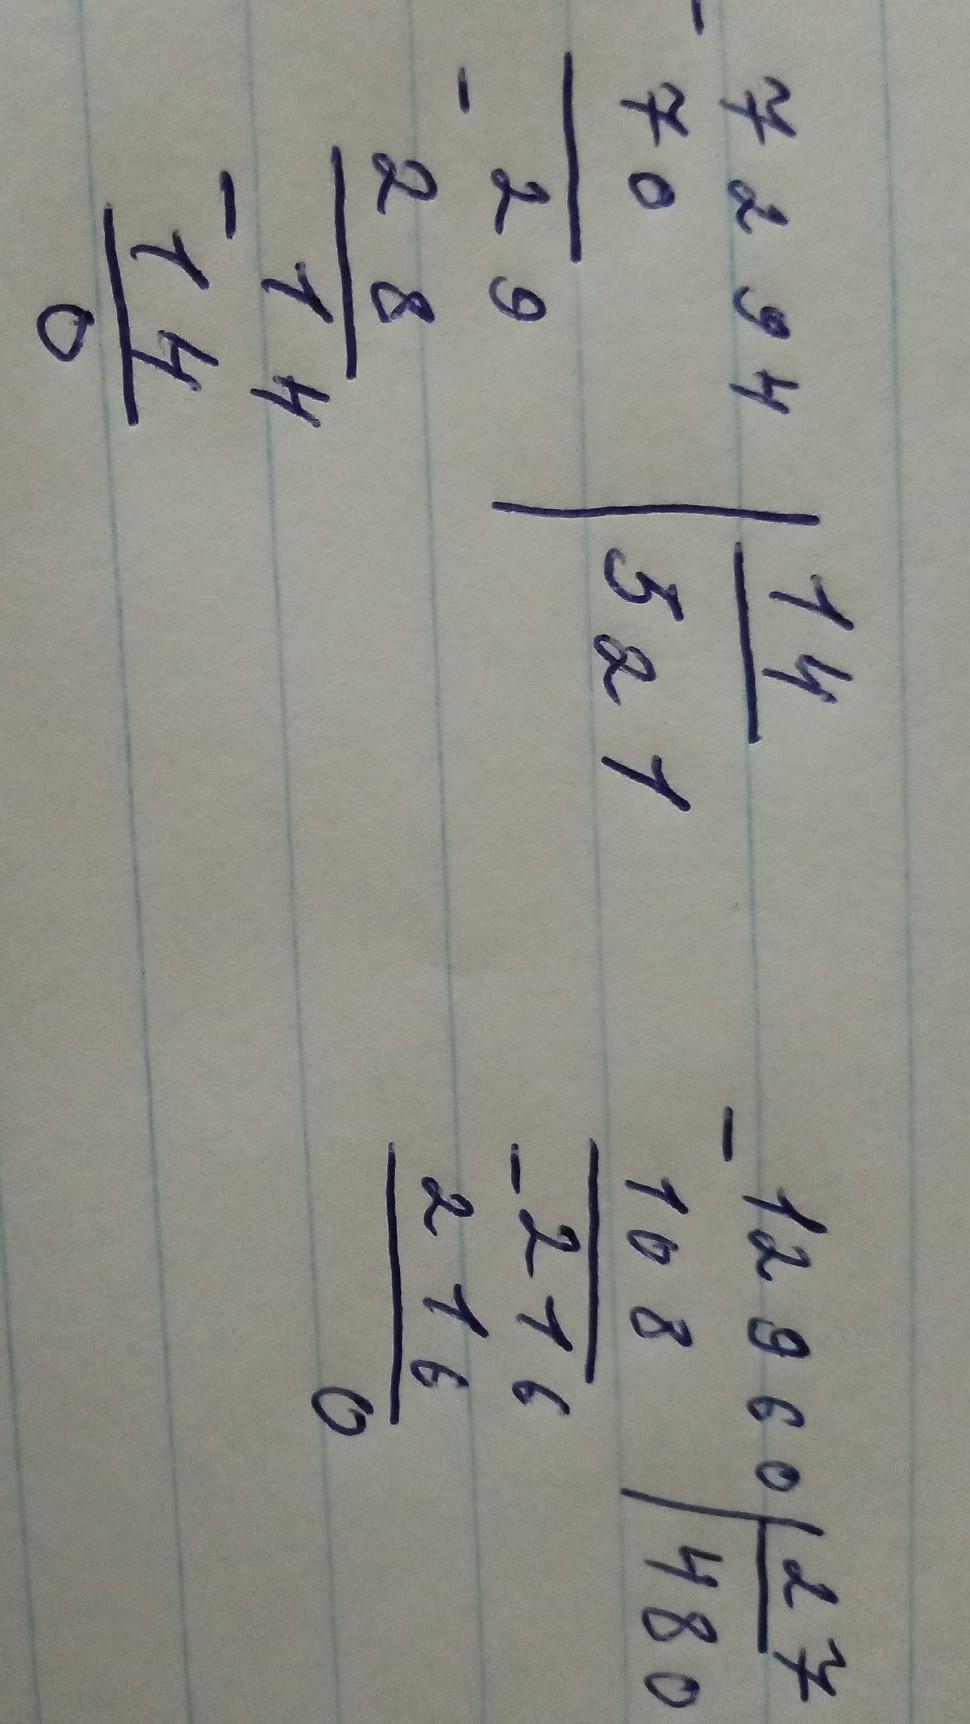 - 7294 | 14
70 | 521
- 29
28
- 14
- 14
0
- 12960 | 27
108 | 480
- 216
216
0